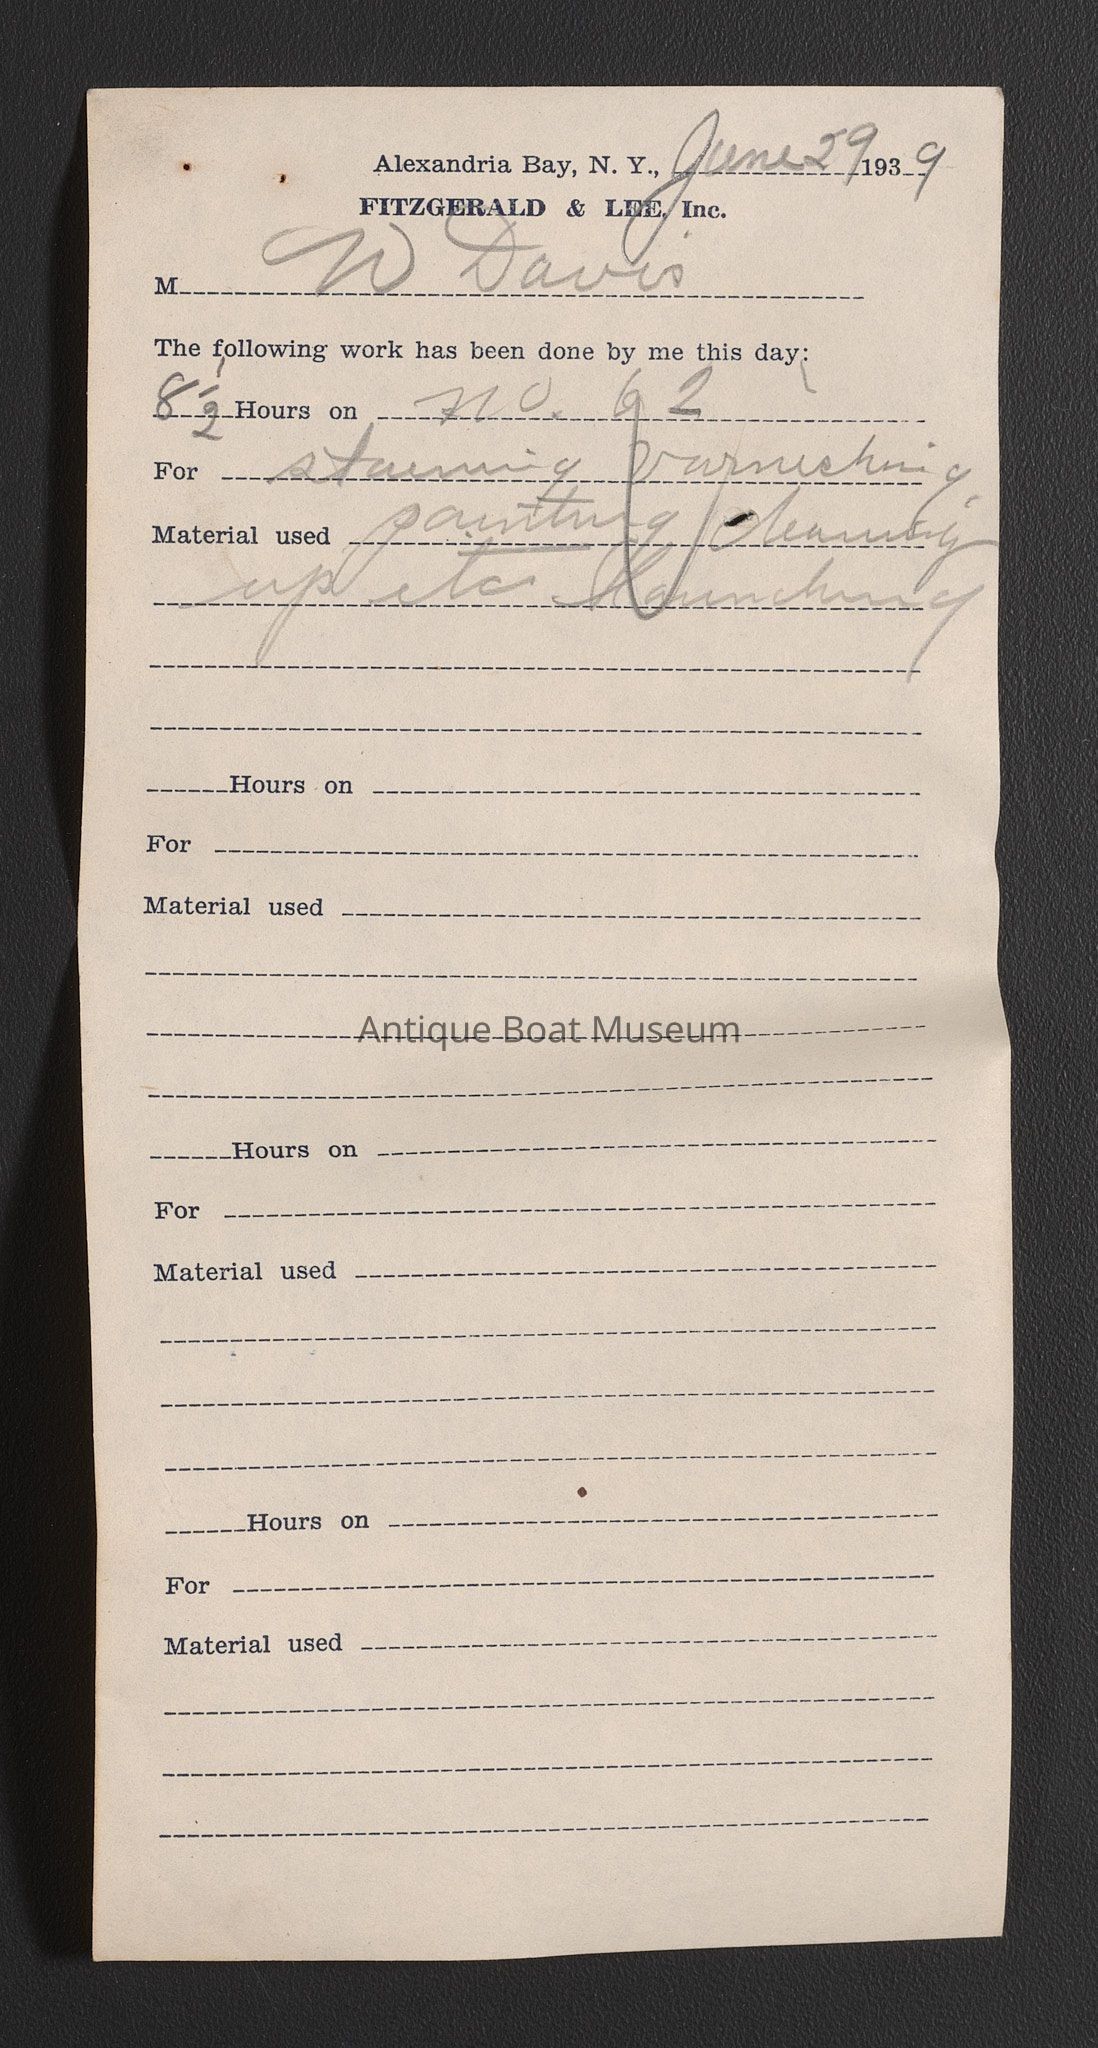 Alexandria Bay, N. Y., June 29 1939
FITZGERALD & LEE, Inc.
M W Davis
The following work has been done by me this day:
8 1/2 Hours on no. 62
For staening varneshing,
Material used painting cleaning
up etc launching
Hours on
For
Material used
Antique Boat Museum
Hours on
For
Material used
Hours on
For
Material used